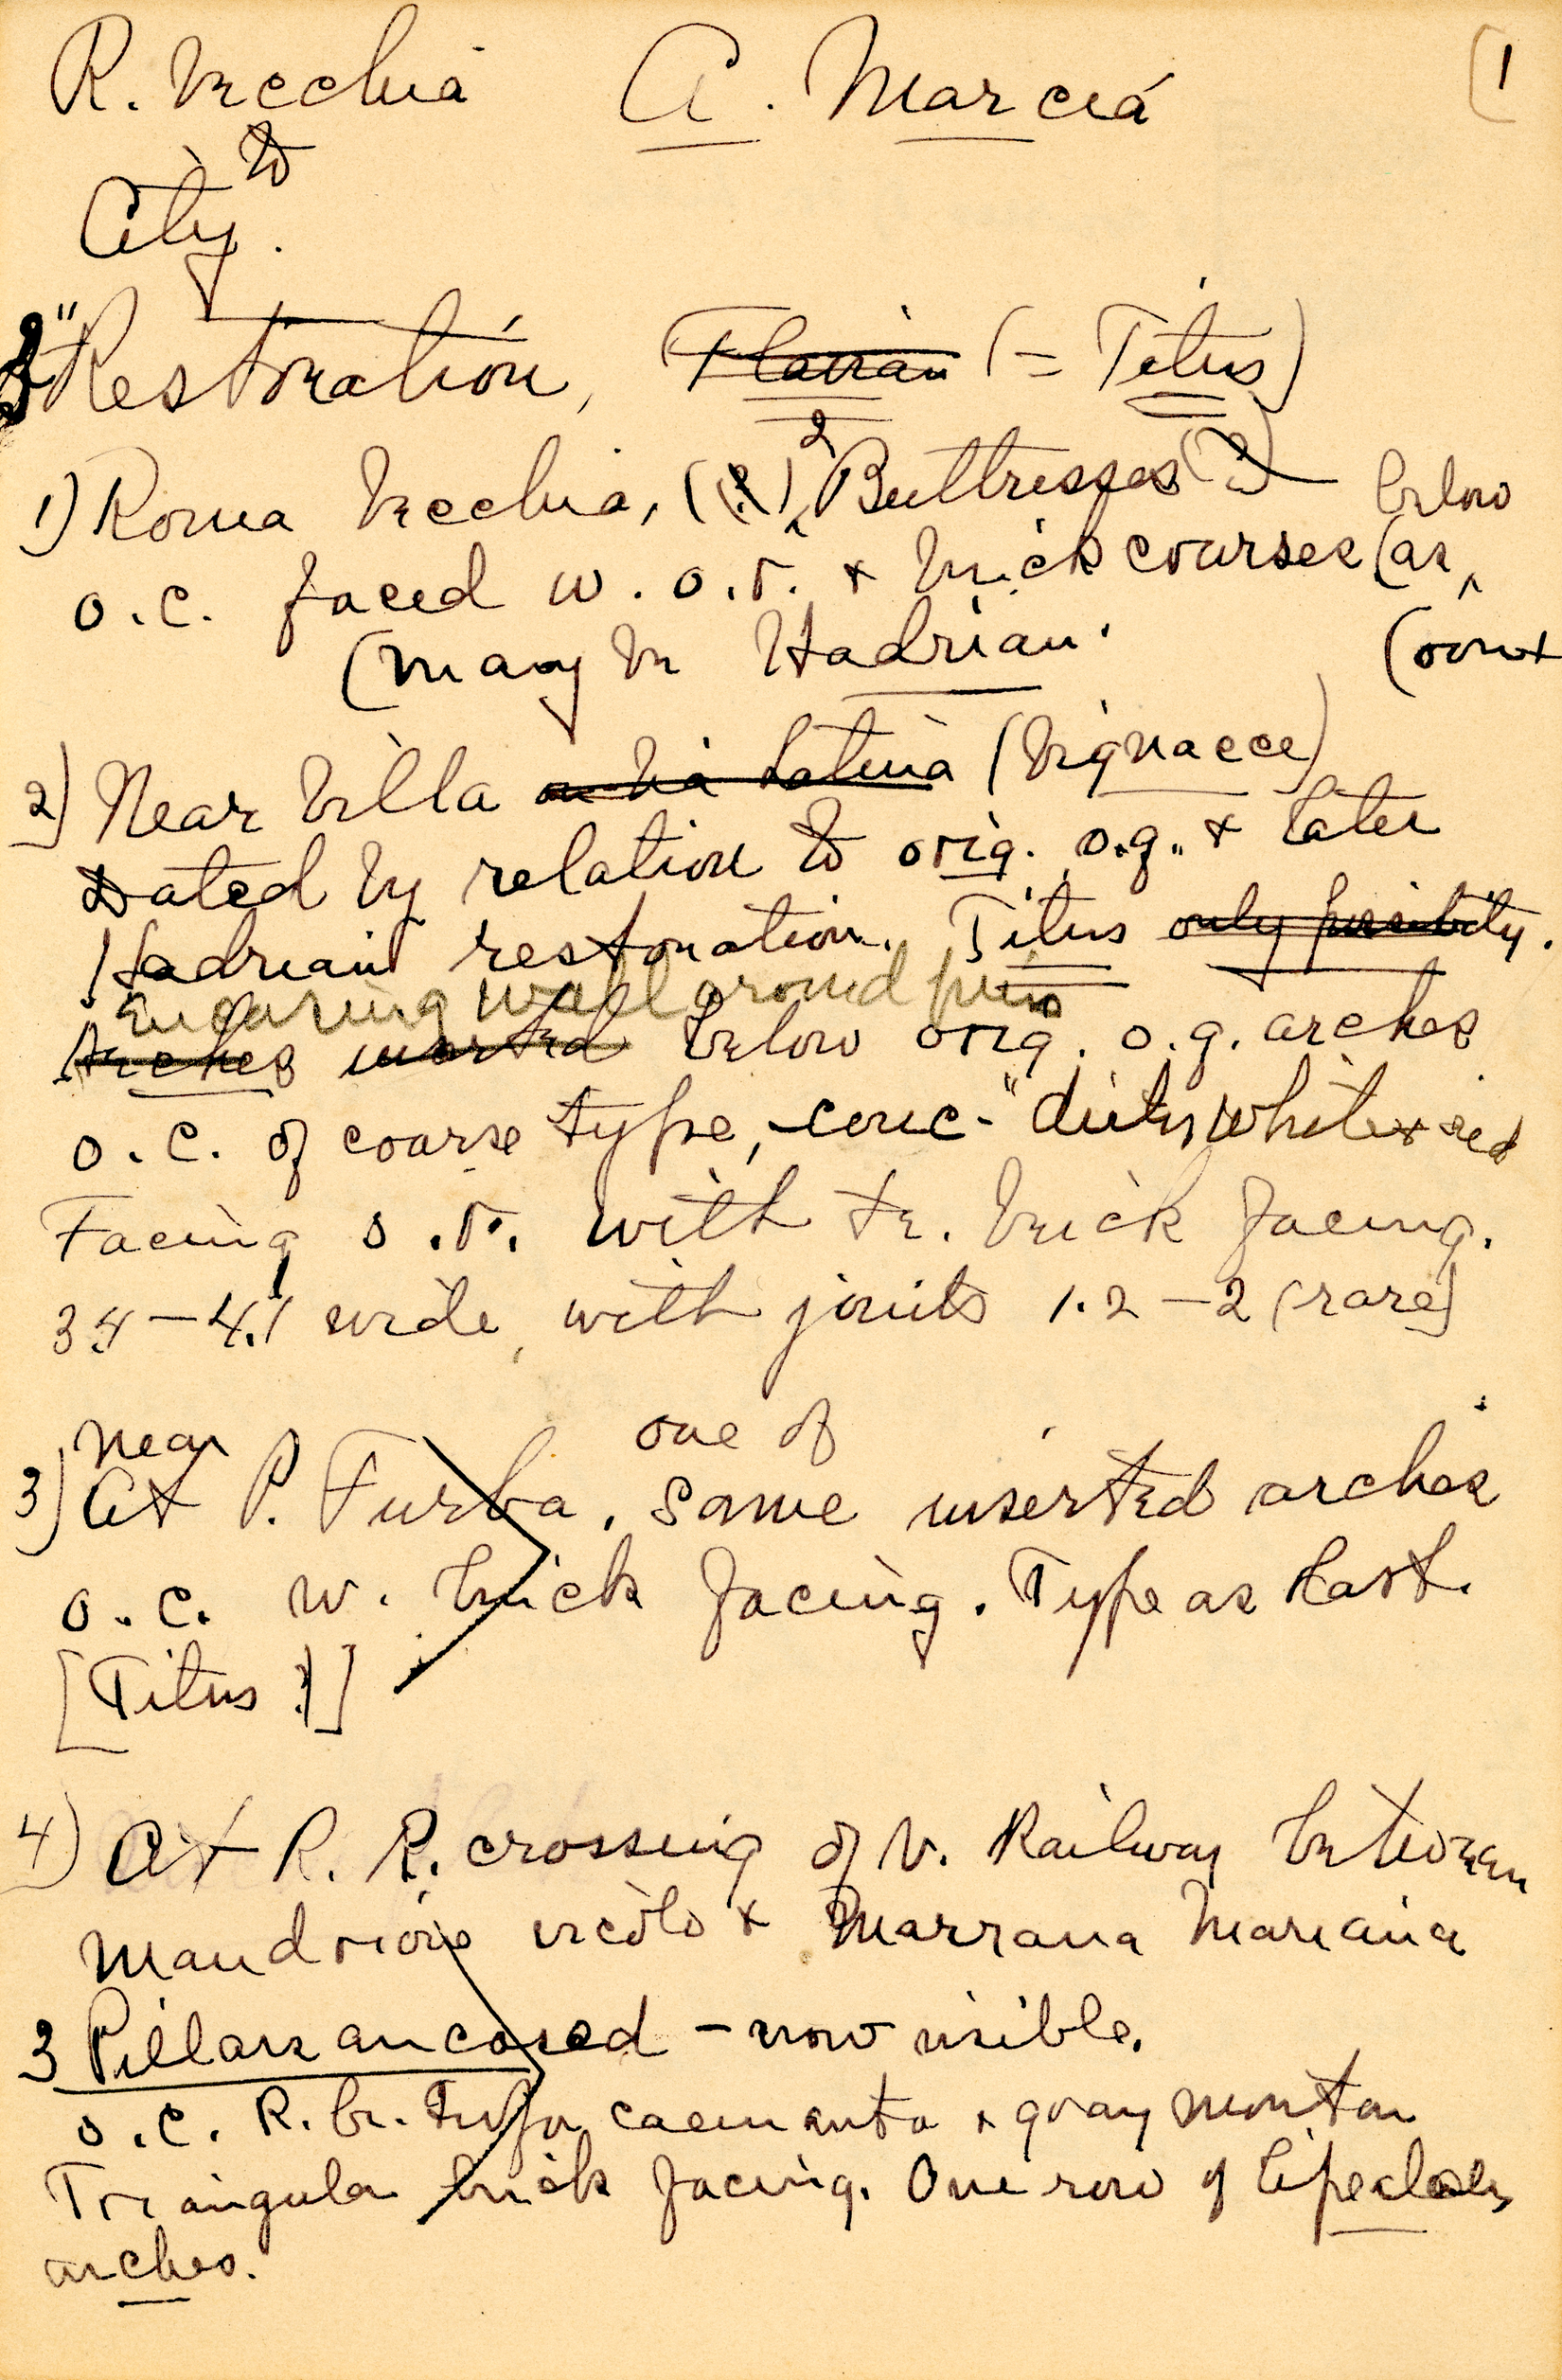 R. Vecchia A. Marcia (1
to
City.
3" Restoration, (Flavian (= Titus)
1) Roma Vecchia, (?) 2 Buttresses (?) below
o.c. faced w. o.r. + brick courses (as
(may be Hadrian. (cont
2) Near Villa on Via Latina (Vignacce)
Dated by relation to orig. o.q. + later
Hadrian restoration. Titus only possibility.
Encasing wall around piers
Arches inserted below orig. o.q. arches
o.c. of coarse type, -conc- "dirty white + red
Facing o.r. with tr. brick facing.
3.4 - 4.1 wide, with joints 1.2 - 2 (rare)
near one of
3) At P. Furba. Some inserted arches
o.c. w. brick facing. Type as last.
[Titus ?]
4) At R. R. crossing of V. Railway between
Mandrione vicolo + Marrana Mariana
3 Pillars ancased - now visible.
o.c. R. br. tufa caementa + gray mortar
Triangular brick facing. One row of bipedales
arches.